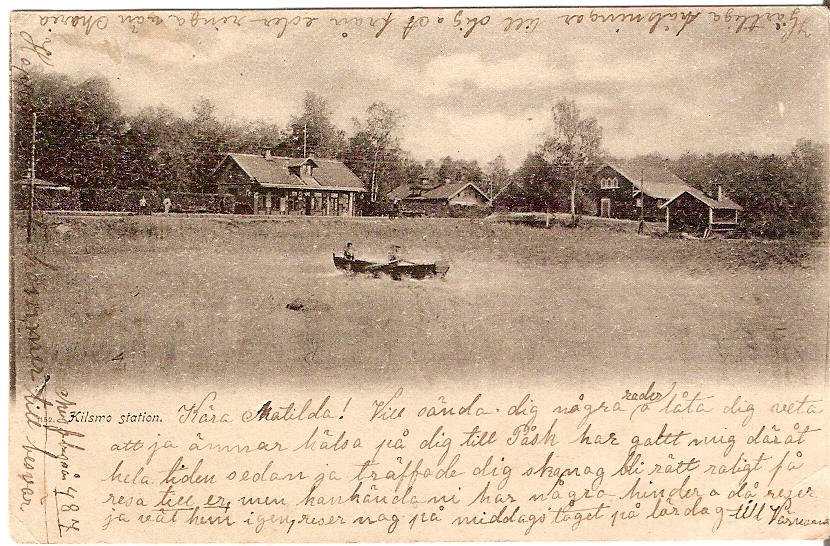 Hjärtliga hälsningar till dig af från eder ringa vän Maria
Kilsmo station.
Kära Matilda! Vill sända dig några rader o låta dig veta
att ja ämnar hälsa på dig till Påsk har gatt mig däråt
hela tiden sedan ja träffade dig skanog bli rätt roligt få
resa till er, men kanhända ni har några hinder o då reser
ja vät hem igen, reser nog på middagståget på lördag till
kommer till besvär
487